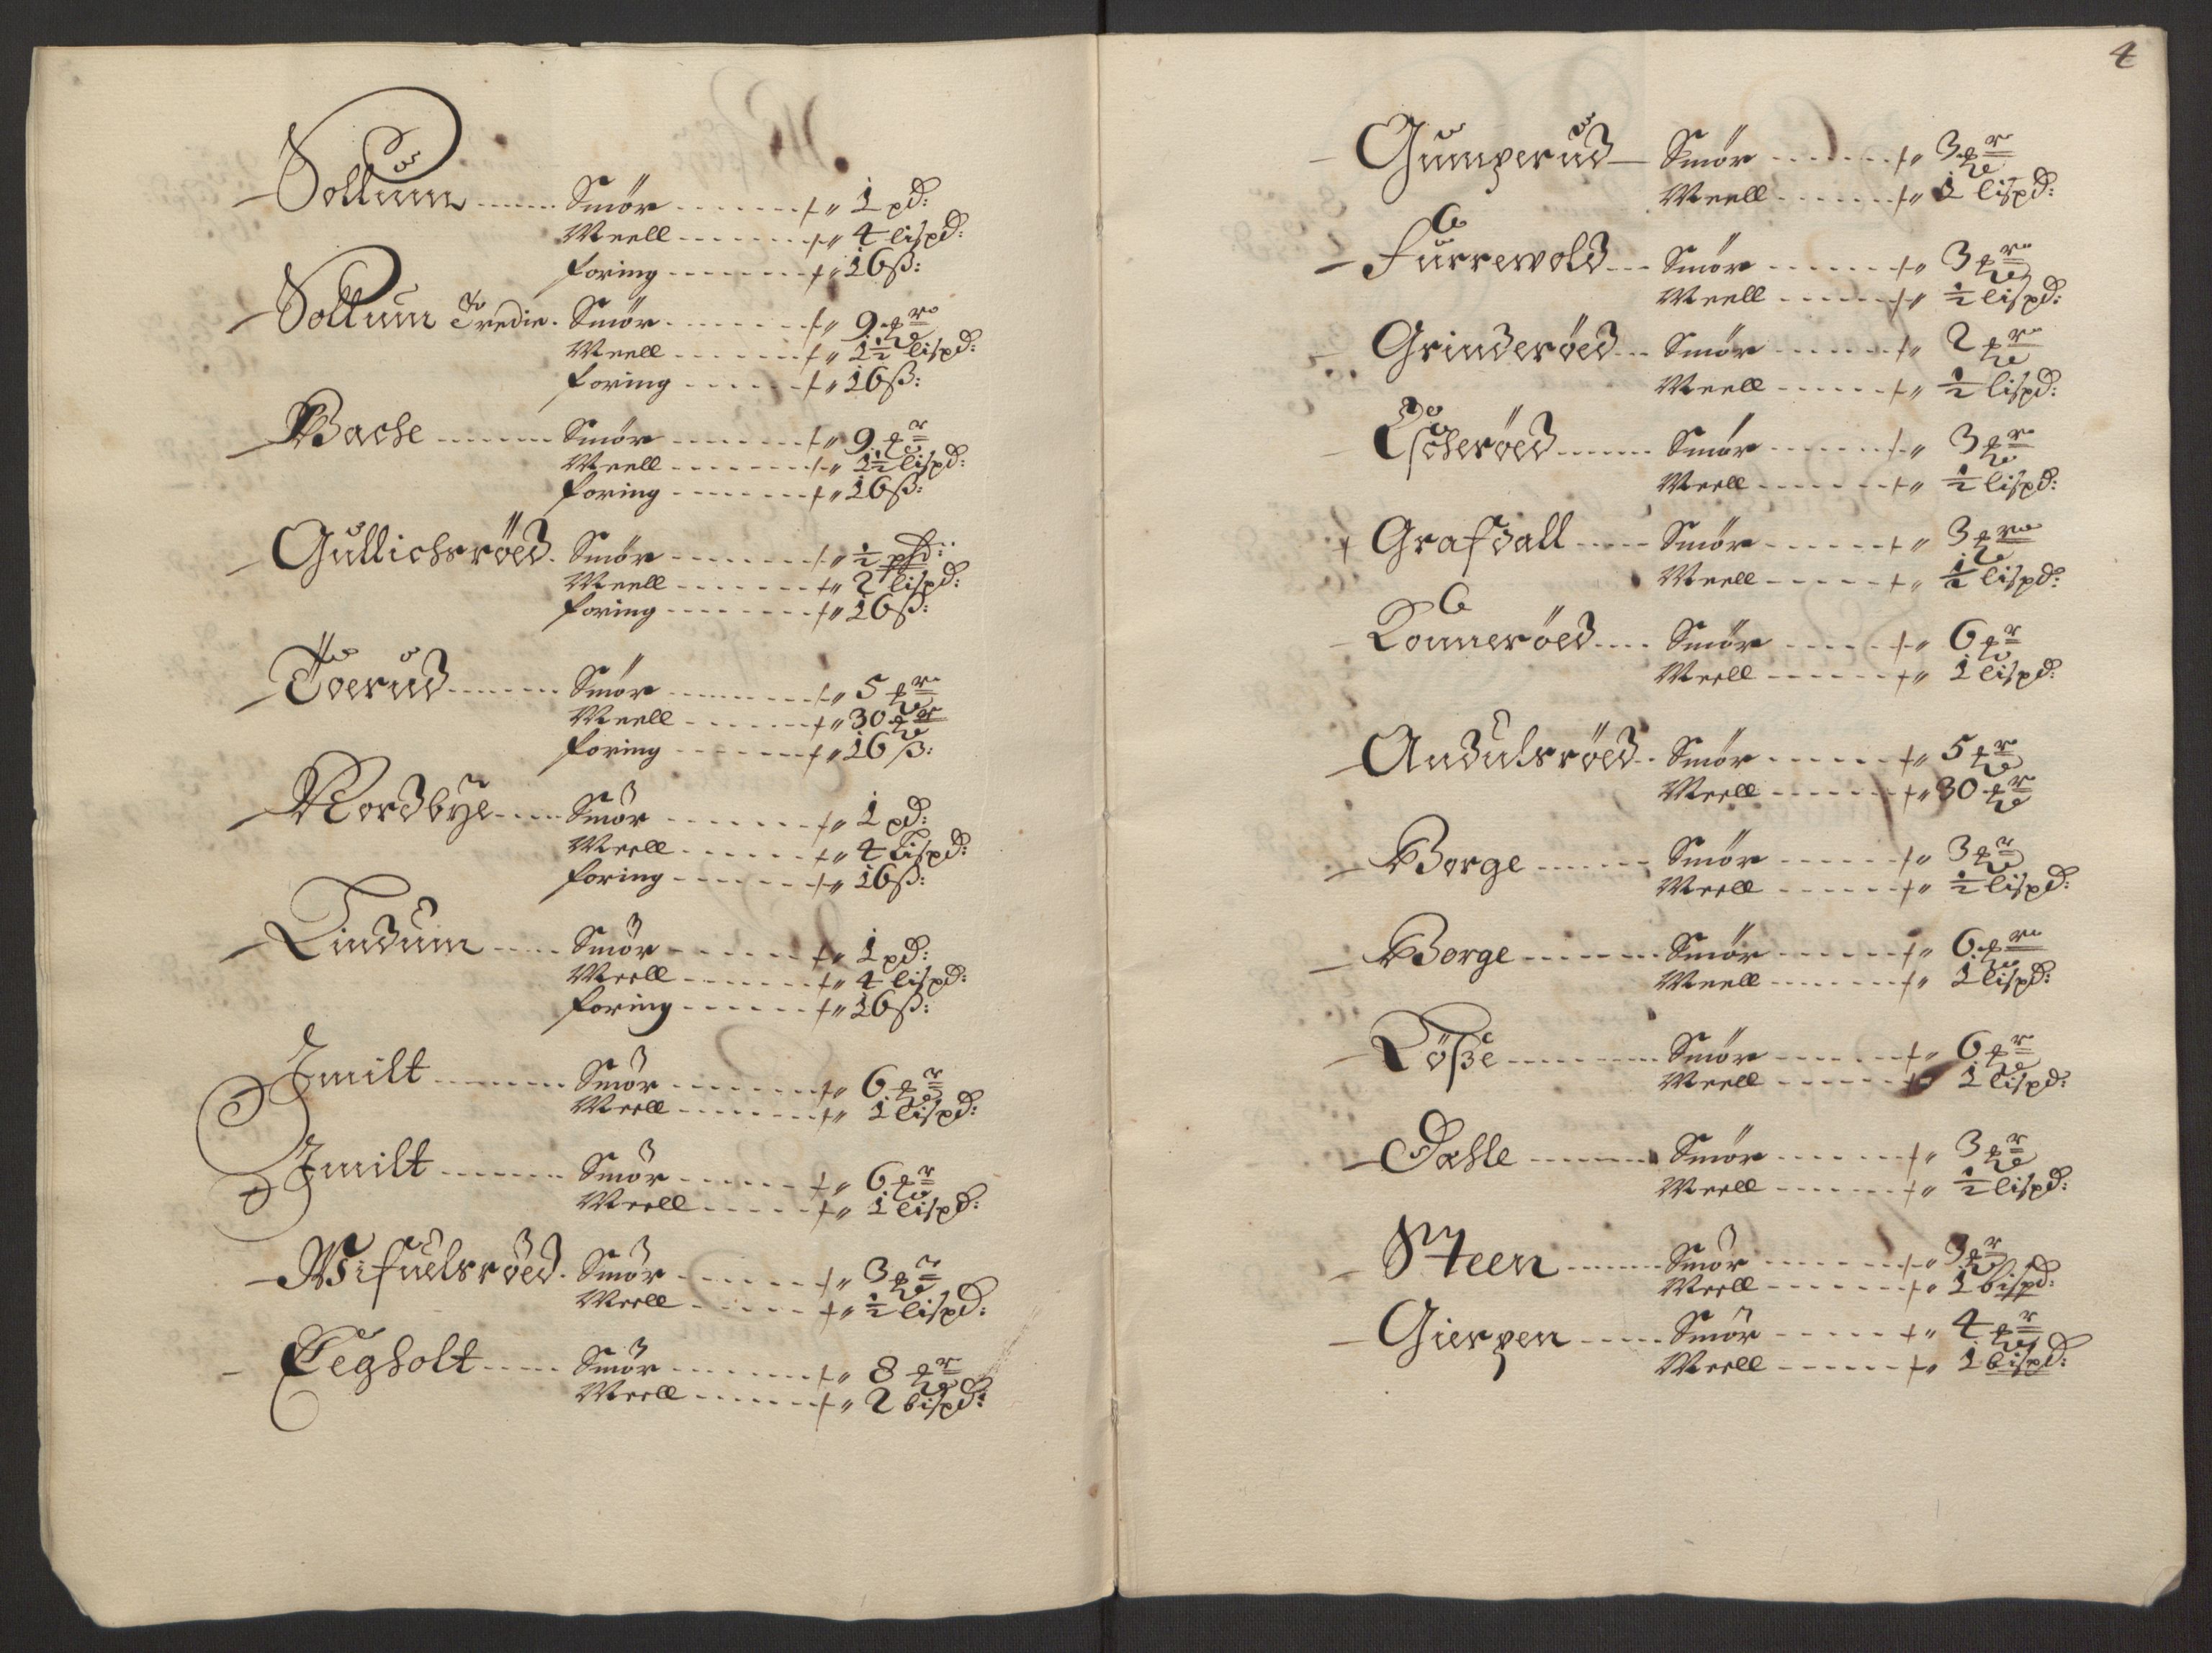 Sollum ...... Smör ....... 1 pd:
Meell ....... 4 lispd:
foring ........ 16 ß:
Sollum Tredie. Smör ....... 9 mr
Meell ....... 1½ lispd:
foring ...... 16 ß:
Bache ....... Smör ....... 9 mr
Meell ....... 1½ lispd:
foring ........ 16 ß:
Gullichsröed. Smör ....... ½ pd:
Meell ....... 2 lispd:
foring ........ 16 ß:
Töerud ....... Smör ........ 5 mr
Meell ....... 30 mr
foring ....... 16 ß:
Nordbÿe .... Smör ....... 1 pd:
Meell ...... 4 lispd:
foring ...... 16 ß:
Lindum ..... Smör ...... 1 pd:
Meell ....... 4 lispd:
foring ...... 16 ß:
Jmilt ........ Smör ....... 6 mr
Meell ....... 1 lispd:
Jmilt ....... Smör ...... 6 mr
Meell ..... 1 lispd:
Wifuelsröed. Smör ...... 3 mr
Meell ..... ½ lispd:
Eegholt ..... Smör ...... 8 mr
Meell ...... 2 bispd:
4
Gumperud Smör ....... 3 mr
Meell ...... 1 lispd:
Furrewold ... Smör ...... 3 mr
Meell ...... ½ lispd:
Grinderöed ... Smör ...... 2 mr
Meell ...... ½ lispd:
Escheröed ...... Smör ...... 3 mr
Meell ...... ½ lispd:
Grafdall ..... Smör ...... 3 mr
Meell ..... ½ lispd:
Ronneröed .... Smör ..... 6 mr
Meell ...... 1 lispd:
Andulsröed .. Smör ...... 5 mr
Meell ...... 30 mr
Borge ...... Smör ...... 3 mr
Meell ...... ½ lispd:
Borge ....... Smör ...... 6 mr
Meell ....... 1 lispd:
Röße ........ Smör ...... 6 mr
Meell ...... 1 lispd:
Dahle ....... Smör ...... 3 mr
Meell ...... ½ lispd:
Steen ...... Smör ...... 3 mr
Meell ....... 1 bispd:
Gierpen ..... Smör ..... 4 mr
Meell ...... 1 bispd: